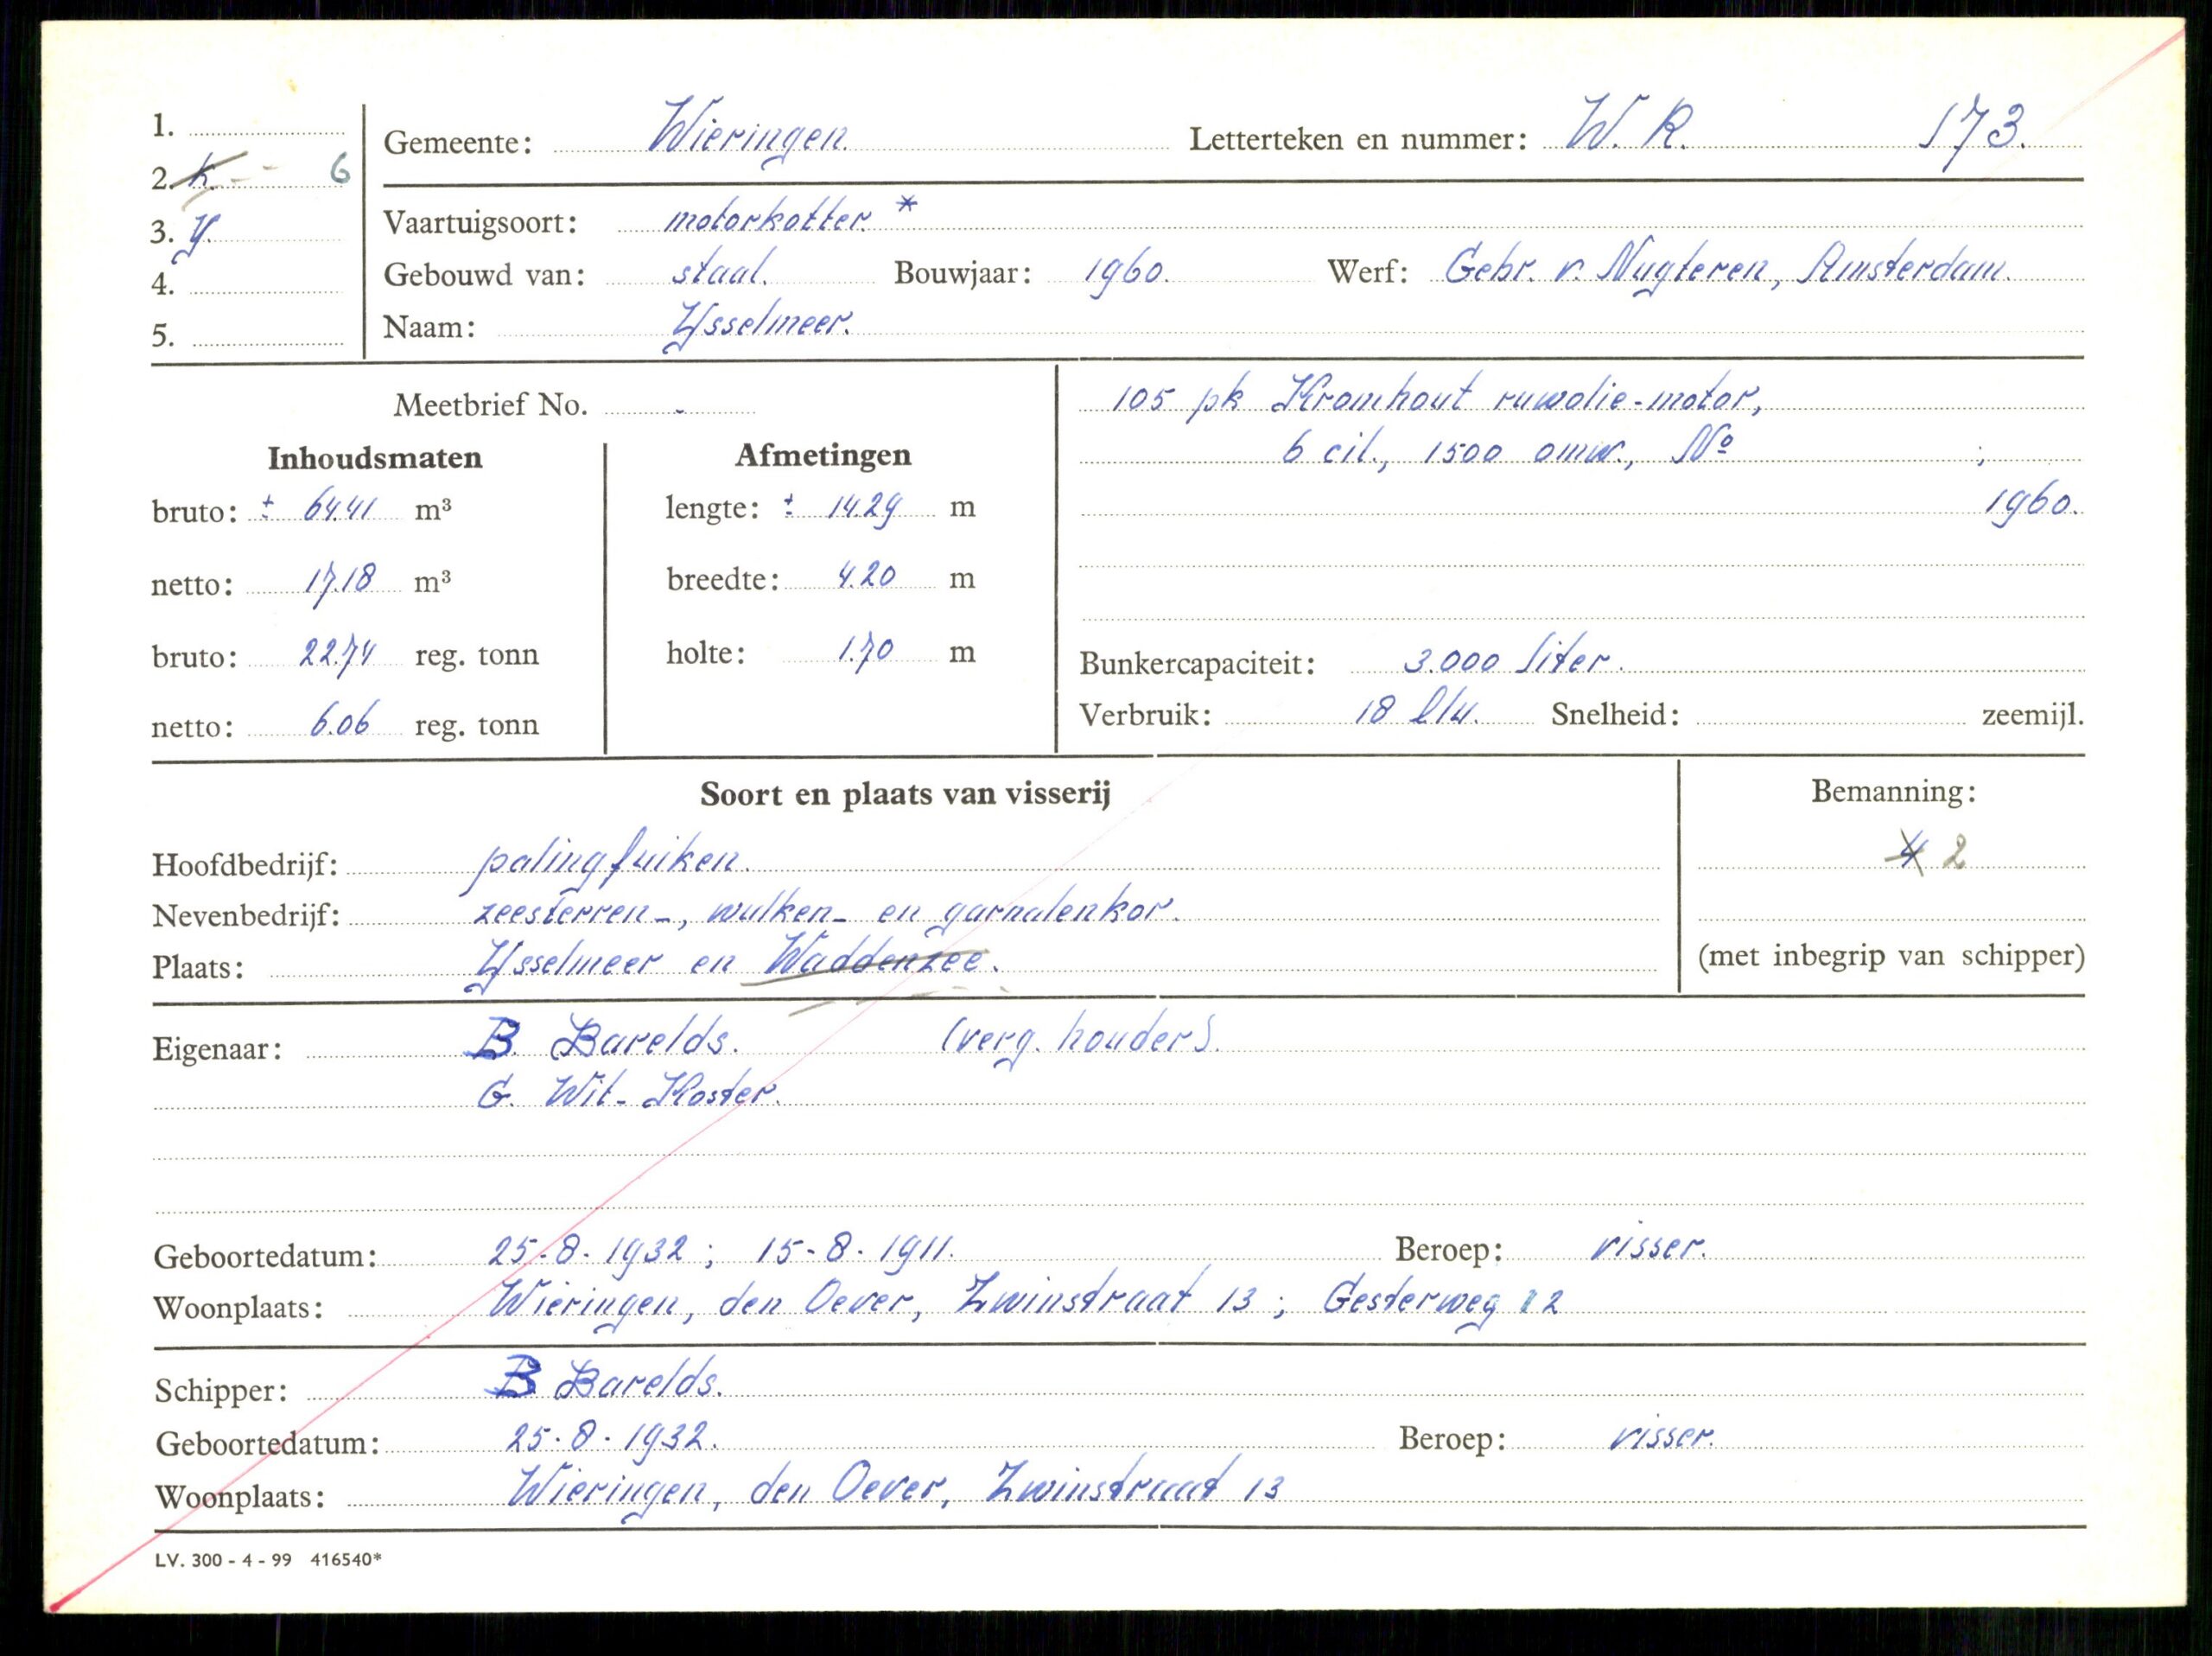 1.
2. K. - - 6
3. Y.
4.
5.
Gemeente: Wieringen. Letterteken en nummer: W. R. 173.
Vaartuigsoort: motorkotter. *
Gebouwd van: staal. Bouwjaar: 1960. Werf: Gebr. v. Nugteren, Amsterdam.
Naam: IJsselmeer.
Meetbrief No. -
Inhoudsmaten
bruto: ± 64.41 m³
netto: 17.18 m³
bruto: 22.74 reg. tonn
netto: 6.06 reg. tonn
Afmetingen
lengte: ± 14.29 m
breedte: 4.20 m
holte: 1.70 m
105 pk Kromhout ruwolie-motor,
6 cil., 1500 omw., No ;
1960.
Bunkercapaciteit: 3.000 liter.
Verbruik: 18 l/u. Snelheid: zeemijl.
Soort en plaats van visserij
Hoofdbedrijf: palingfuiken.
Nevenbedrijf: zeesterren-, wulken- en garnalenkor.
Plaats: IJsselmeer en Waddenzee.
Bemanning:
4 2
(met inbegrip van schipper)
Eigenaar: B Barelds. (verg. houder).
G. Wit-Koster.
Geboortedatum: 25-8-1932; 15-8-1911. Beroep: visser.
Woonplaats: Wieringen, den Oever, Zwinstraat 13; Gesterweg 12
Schipper: B Barelds.
Geboortedatum: 25-8-1932. Beroep: visser.
Woonplaats: Wieringen, den Oever, Zwinstraat 13
LV. 300 - 4 - 99 416540*